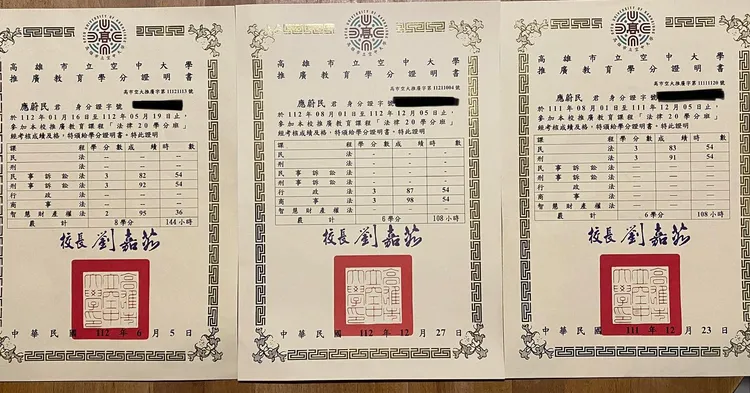 高雄市立空中大學
推廣教育學分證明書
高市空大推廣字第11121113號
應蔚民 君 身分證字號
於112年01月16日至112年05月19日止,
參加本校推廣教育課程「法律20學分班」
經考核成績及格,特頒給學分證明書,特此證明
課程 學分數 成績 時數
民法 - - -
刑法 - - -
民事訴訟法 3 82 54
刑事訴訟法 3 92 54
行政法 - - -
商事法 - - -
智慧財產權法 2 95 36
總計 8學分 144小時
校長 劉嘉茹
高雄市立空中大學印
中華民國 112 年 6 月 5 日
高雄市立空中大學
推廣教育學分證明書
高市空大推廣字第11211004號
應蔚民 君 身分證字號
於112年08月01日至112年12月05日止,
參加本校推廣教育課程「法律20學分班」
經考核成績及格,特頒給學分證明書,特此證明
課程 學分數 成績 時數
民法 - - -
刑法 - - -
民事訴訟法 - - -
刑事訴訟法 - - -
行政法 3 87 54
商事法 3 98 54
智慧財產權法 - - -
總計 6學分 108小時
校長 劉嘉茹
高雄市立空中大學印
中華民國 112 年 12 月 27 日
高雄市立空中大學
推廣教育學分證明書
高市空大推廣字第11111120號
應蔚民 君 身分證字號
於111年08月01日至111年12月05日止,
參加本校推廣教育課程「法律20學分班」
經考核成績及格,特頒給學分證明書,特此證明
課程 學分數 成績 時數
民法 3 83 54
刑法 3 91 54
民事訴訟法 — — —
刑事訴訟法 — — —
行政法 — — —
商事法 — — —
智慧財產權法 — — —
總計 6學分 108小時
校長 劉嘉茹
高雄市立空中大學印
中華民國 111 年 12 月 23 日